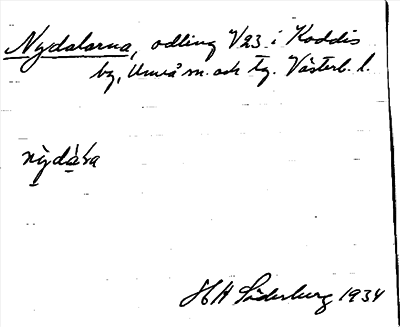 Nydalarna, odling V23 i Koddis
by, Umeå sn. och tg. Västerb. l.
nỳdàʹra
HH Söderburg 1934